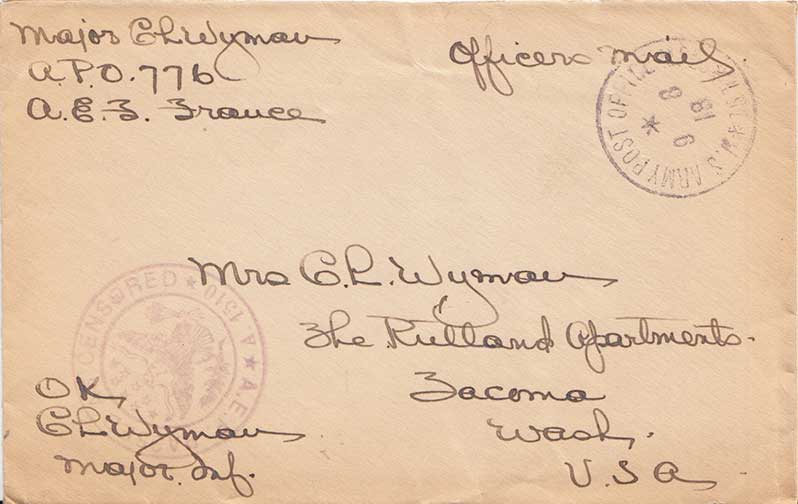 Major C L Wyman
A.P.O. 776
A.E.F. France
Officers Mail
U.S. ARMY POST OFFICE
8
6
18
Mrs C. L. Wyman
The Rutland Apartments.
Tacoma
Wash.
U.S A
CENSORED
A. 1510
A.E.
OK
C L Wyman
Major. Inf.